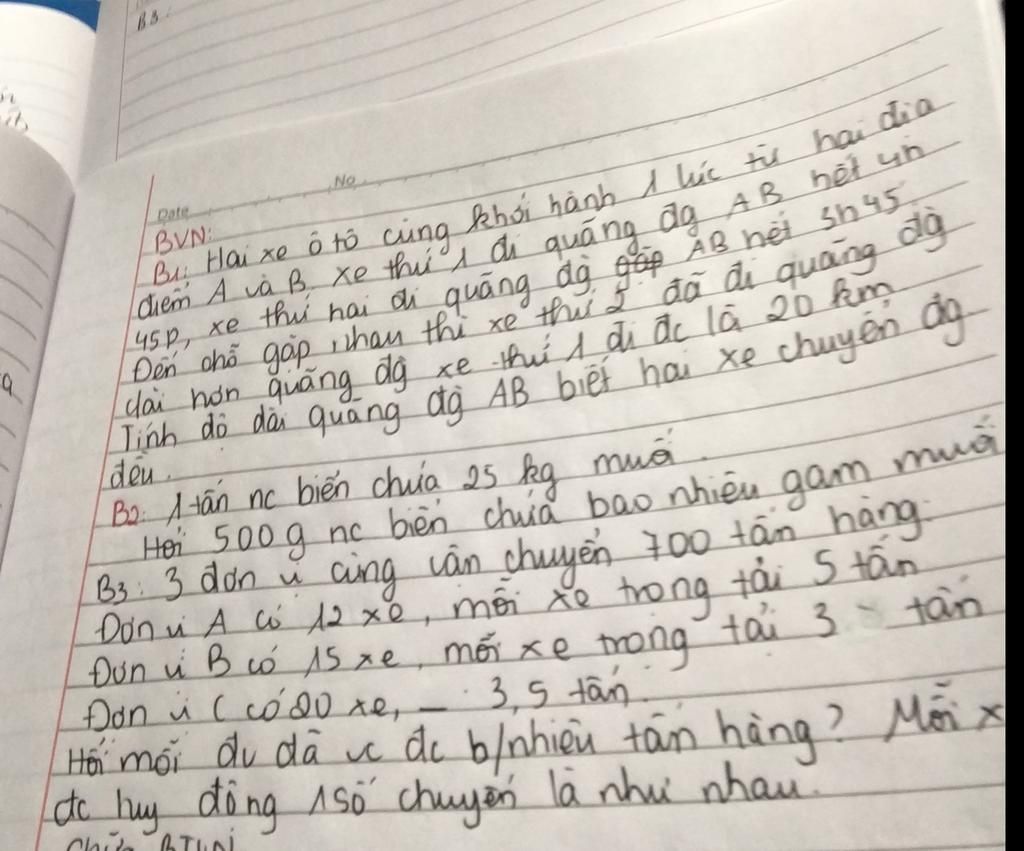 B3:
No
Date
BVN:
B1: Hai xe ô tô cùng khởi hành 1 lúc từ hai địa
điểm A và B. Xe thứ 1 đi quãng đg AB hết 4h
45p, xe thứ hai đi quãng đg gấp AB hết 3h45.
Đến chỗ gặp nhau thì xe thứ 2 đã đi quãng đg
dài hơn quãng đg xe thứ 1 đi đc là 20 km
Tính độ dài quãng đg AB biết hai xe chuyển đg
đều.
B2: 1 tấn nc biển chứa 25 kg muối.
Hỏi 500g nc biển chứa bao nhiêu gam muối
B3: 3 đơn vị cùng vận chuyển 700 tấn hàng.
Đơn vị A có 12 xe, mỗi xe trọng tải 5 tấn
Đơn vị B có 15 xe, mỗi xe trọng tải 3 tấn
Đơn vị C có 20 xe, _ 3,5 tấn.
Hỏi mỗi đv đã vc đc b/nhiêu tấn hàng? Mỗi x
đc huy động 1 số chuyến là như nhau.